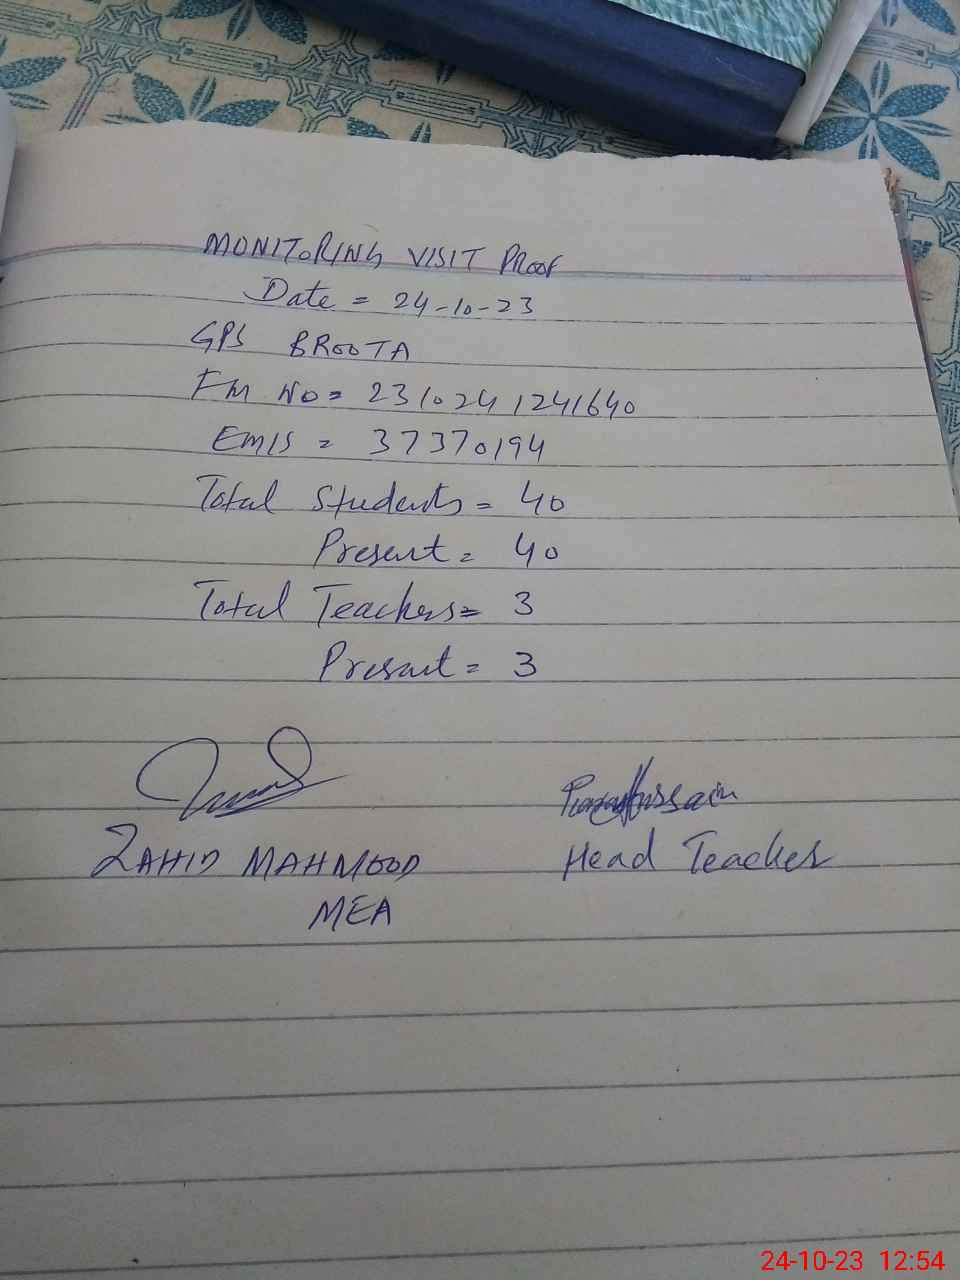 MONITORING VISIT PROOF
Date = 24-10-23
GPS BROOTA
FM NO = 2310241241640
EMIS = 37370194
Total Students = 40
Present = 40
Total Teachers = 3
Present = 3
Hussain
ZAHID MAHMOOD
Head Teacher
MEA
24-10-23 12:54